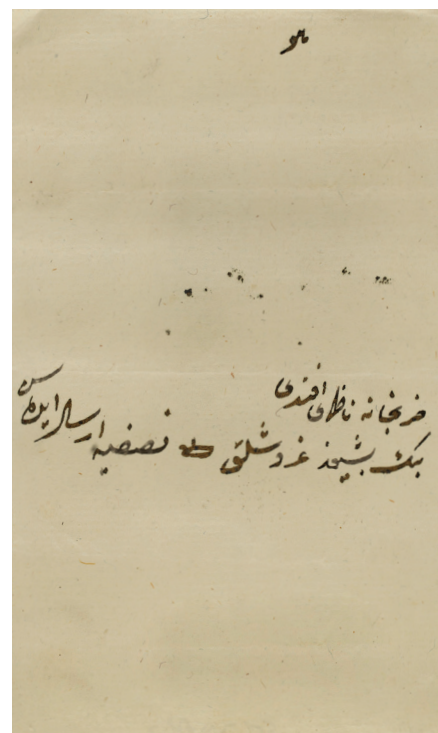 ضربخانه ناظری افندی
بیك بشیوز غروشلق نصفیه ارسال ایده سن